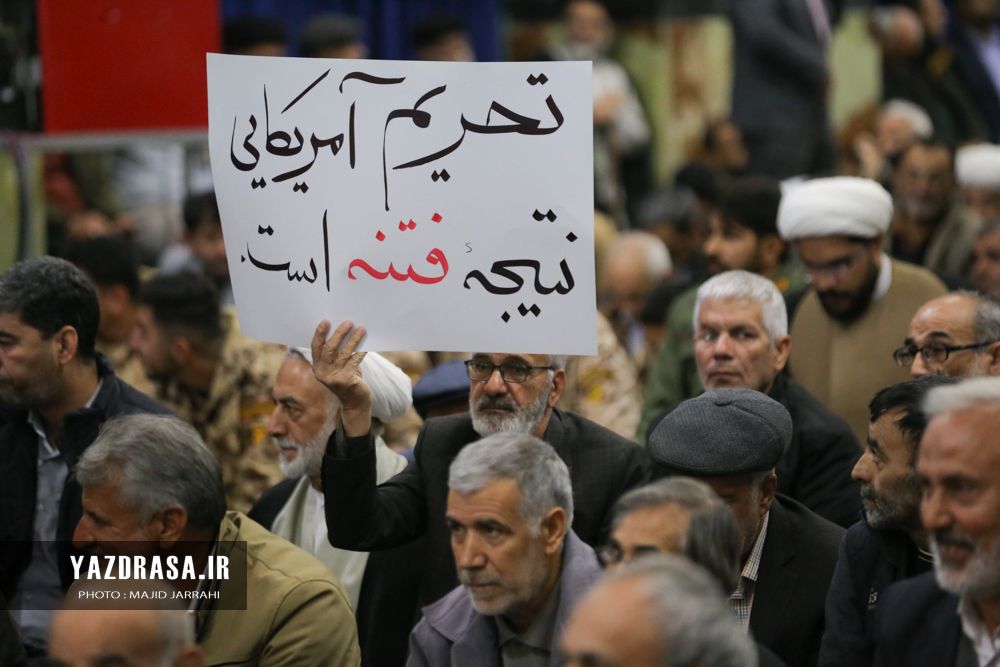 تحریم آمریکایی
نتیجهٔ فتنه است.
YAZDRASA.IR
PHOTO : MAJID JARRAHI